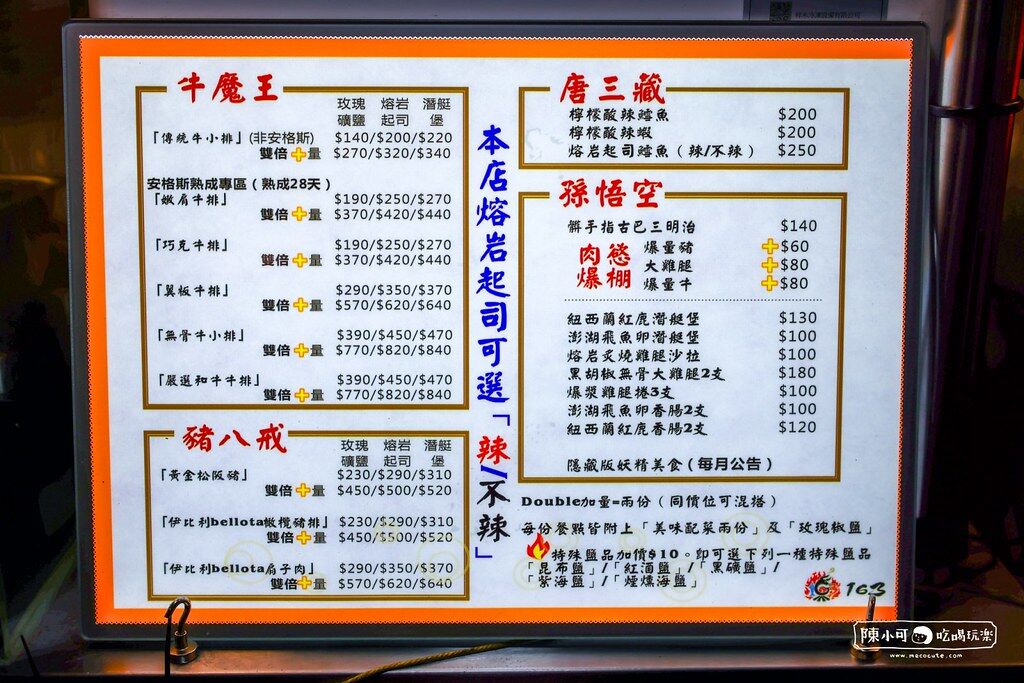 牛魔王
玫瑰 熔岩 潛艇
礦鹽 起司 堡
「傳統牛小排」(非安格斯) $140/$200/$220
雙倍+量 $270/$320/$340
安格斯熟成專區(熟成28天)
「嫩肩牛排」 $190/$250/$270
雙倍+量 $370/$420/$440
「巧克牛排」 $190/$250/$270
雙倍+量 $370/$420/$440
「翼板牛排」 $290/$350/$370
雙倍+量 $570/$620/$640
「無骨牛小排」 $390/$450/$470
雙倍+量 $770/$820/$840
「嚴選和牛牛排」 $390/$450/$470
雙倍+量 $770/$820/$840
豬八戒
玫瑰 熔岩 潛艇
礦鹽 起司 堡
「黃金松阪豬」 $230/$290/$310
雙倍+量 $450/$500/$520
「伊比利bellota橄欖豬排」 $230/$290/$310
雙倍+量 $450/$500/$520
「伊比利bellota扇子肉」 $290/$350/$370
雙倍+量 $570/$620/$640
本店熔岩起司可選「辣/不辣」
唐三藏
檸檬酸辣鱈魚 $200
檸檬酸辣蝦 $200
熔岩起司鱈魚(辣/不辣) $250
孫悟空
髒手指古巴三明治 $140
肉慾
爆棚
爆量豬 +$60
大雞腿 +$80
爆量牛 +$80
紐西蘭紅鹿潛艇堡 $130
澎湖飛魚卵潛艇堡 $100
熔岩炙燒雞腿沙拉 $100
黑胡椒無骨大雞腿2支 $180
爆漿雞腿捲3支 $100
澎湖飛魚卵香腸2支 $100
紐西蘭紅鹿香腸2支 $120
隱藏版妖精美食(每月公告)
Double加量=兩份(同價位可混搭)
每份餐點皆附上「美味配菜兩份」及「玫瑰椒鹽」
特殊鹽品加價$10。即可選下列一種特殊鹽品
「昆布鹽」/「紅酒鹽」/「黑礦鹽」/
「紫海鹽」/「煙燻海鹽」
163
陳小可 吃喝玩樂
www.mecocute.com